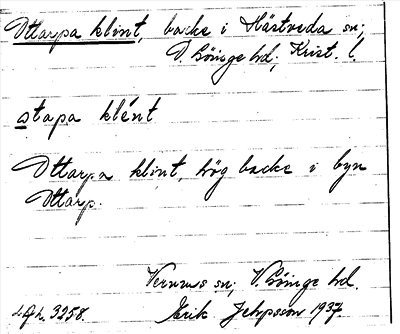 Ottarpa klint, backe i Hästveda sn;
V. Göinge hd; Krist. l.
stapa klént
Ottarpa klint, hög backe i byn
Ottarp.
Verums sn; V. Göinge hd.
L.G.L. 3258. Erik Jeppsson 1937.